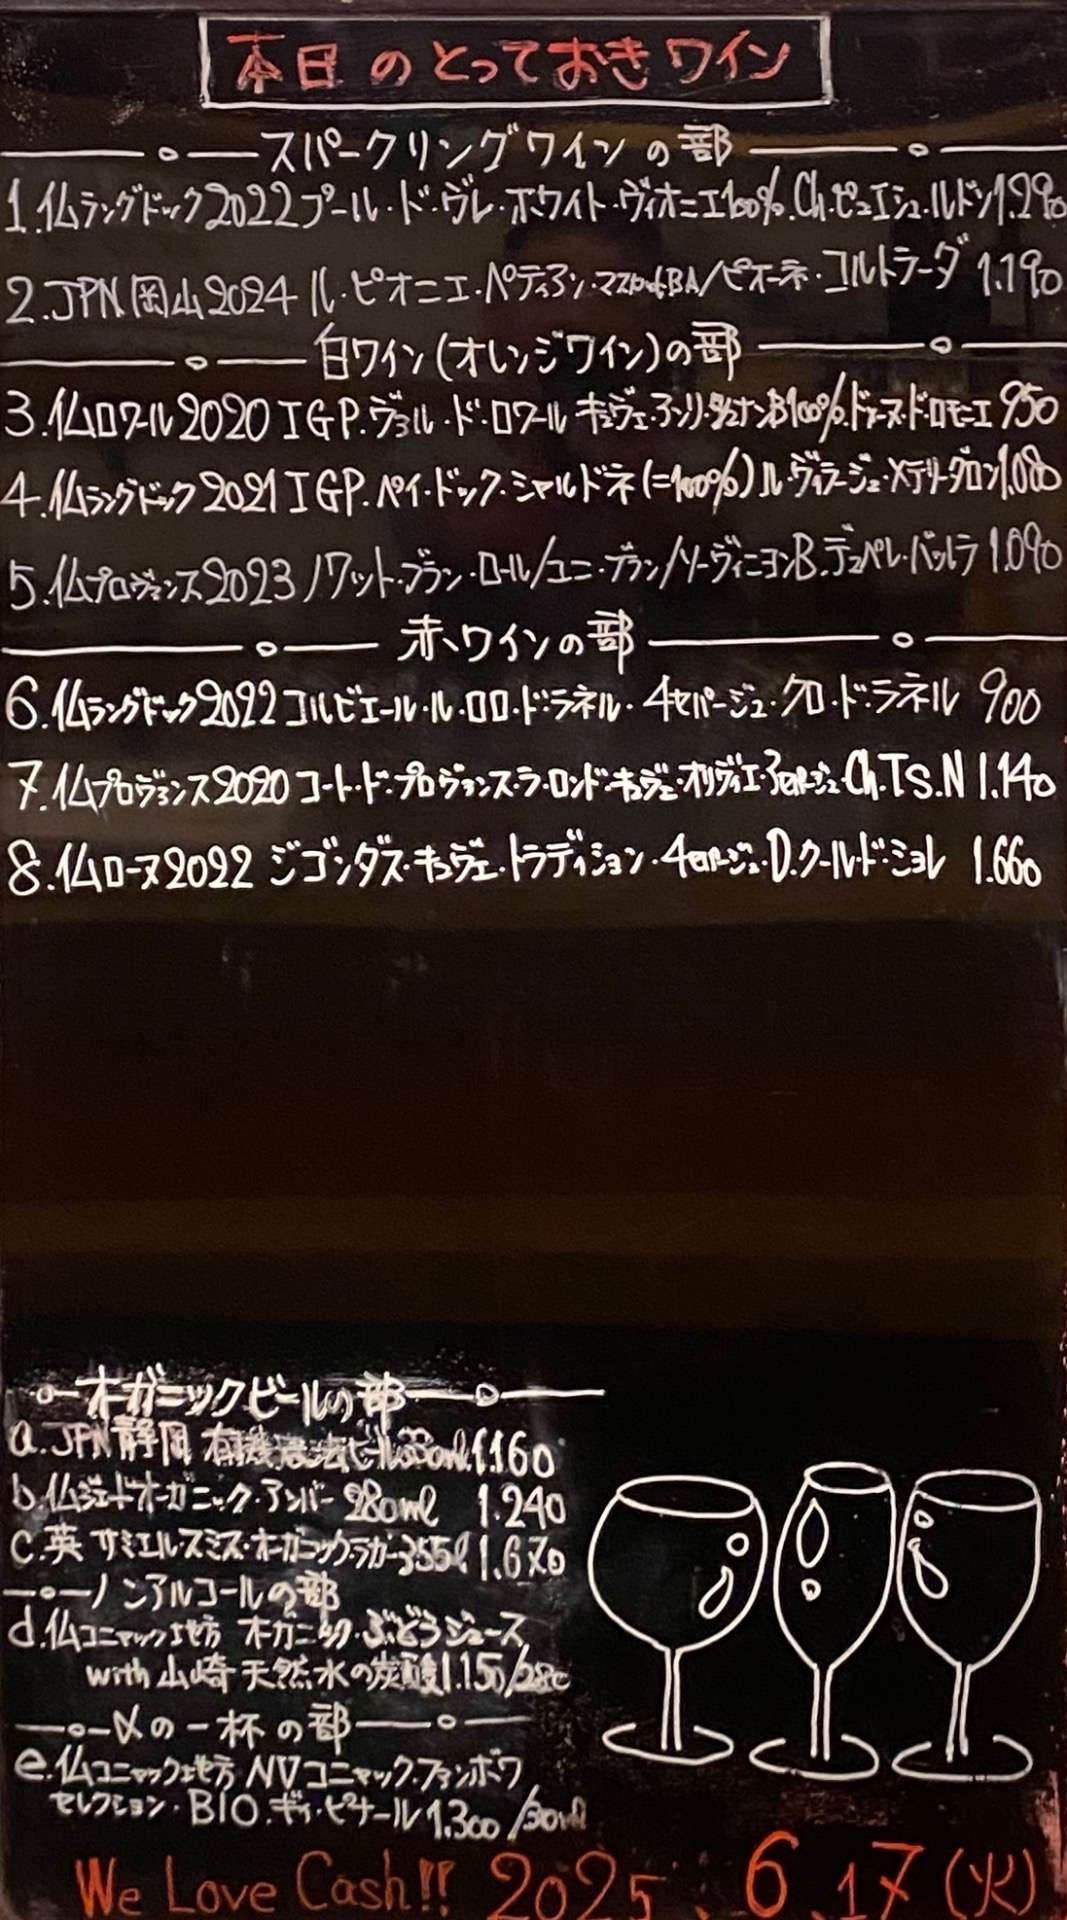 本日のとっておきワイン
スパークリングワインの部
1.仏ラングドック2022プール・ド・ヴレ・ホワイト・ヴィオニエ100%.Ch.ピュエシュ・ルドン1.290
2.JPN岡山2024ル・ピオニエ・ペティアン・マスカットBA/ピオーネ・コルトラーダ 1.190
白ワイン(オレンジワイン)の部
3.仏ロワール2020IGP.ヴァル・ド・ロワール キュヴェ・アンリ・シュナンB100%.ドメーヌ・ド・ロモニエ 950
4.仏ラングドック2021IGP.ペイ・ドック・シャルドネ(=100%)ル・ヴィラージュ・メテリ・グロン1.080
5.仏プロヴァンス2023ノワット・ブラン・ロール/ユニ・ブラン/ソーヴィニヨンB.デュペレ・バレラ 1.090
赤ワインの部
6.仏ラングドック2022コルビエール・ル・ロロ・ド・ラネル・4セパージュ・クロ・ド・ラネル 900
7.仏プロヴァンス2020コート・ド・プロヴァンス・ラ・ロンド・キュヴェ・オリヴィエ・3セパージュ・Ch.Ts.N 1.140
8.仏ローヌ2022 ジゴンダス・キュヴェ・トラディション・4セパージュ・D.クール・ド・ショレ 1.660
オーガニックビールの部
a.JPN静岡 有機農法ビール330ml.1.160
b.仏ジェードオーガニック・アンバー 280ml 1.240
c.英 サミエルスミス・オーガニックラガー355ml 1.670
ノンアルコールの部
d.仏コニャック地方 オーガニック・ぶどうジュース
with 山崎 天然水の炭酸1.150/28c
〆の一杯の部
e.仏コニャック地方 NVコニャック・ファンボワ
セレクション・BIO.ギィ・ピナール1.300/30ml
We Love Cash!! 2025.6.17(火)